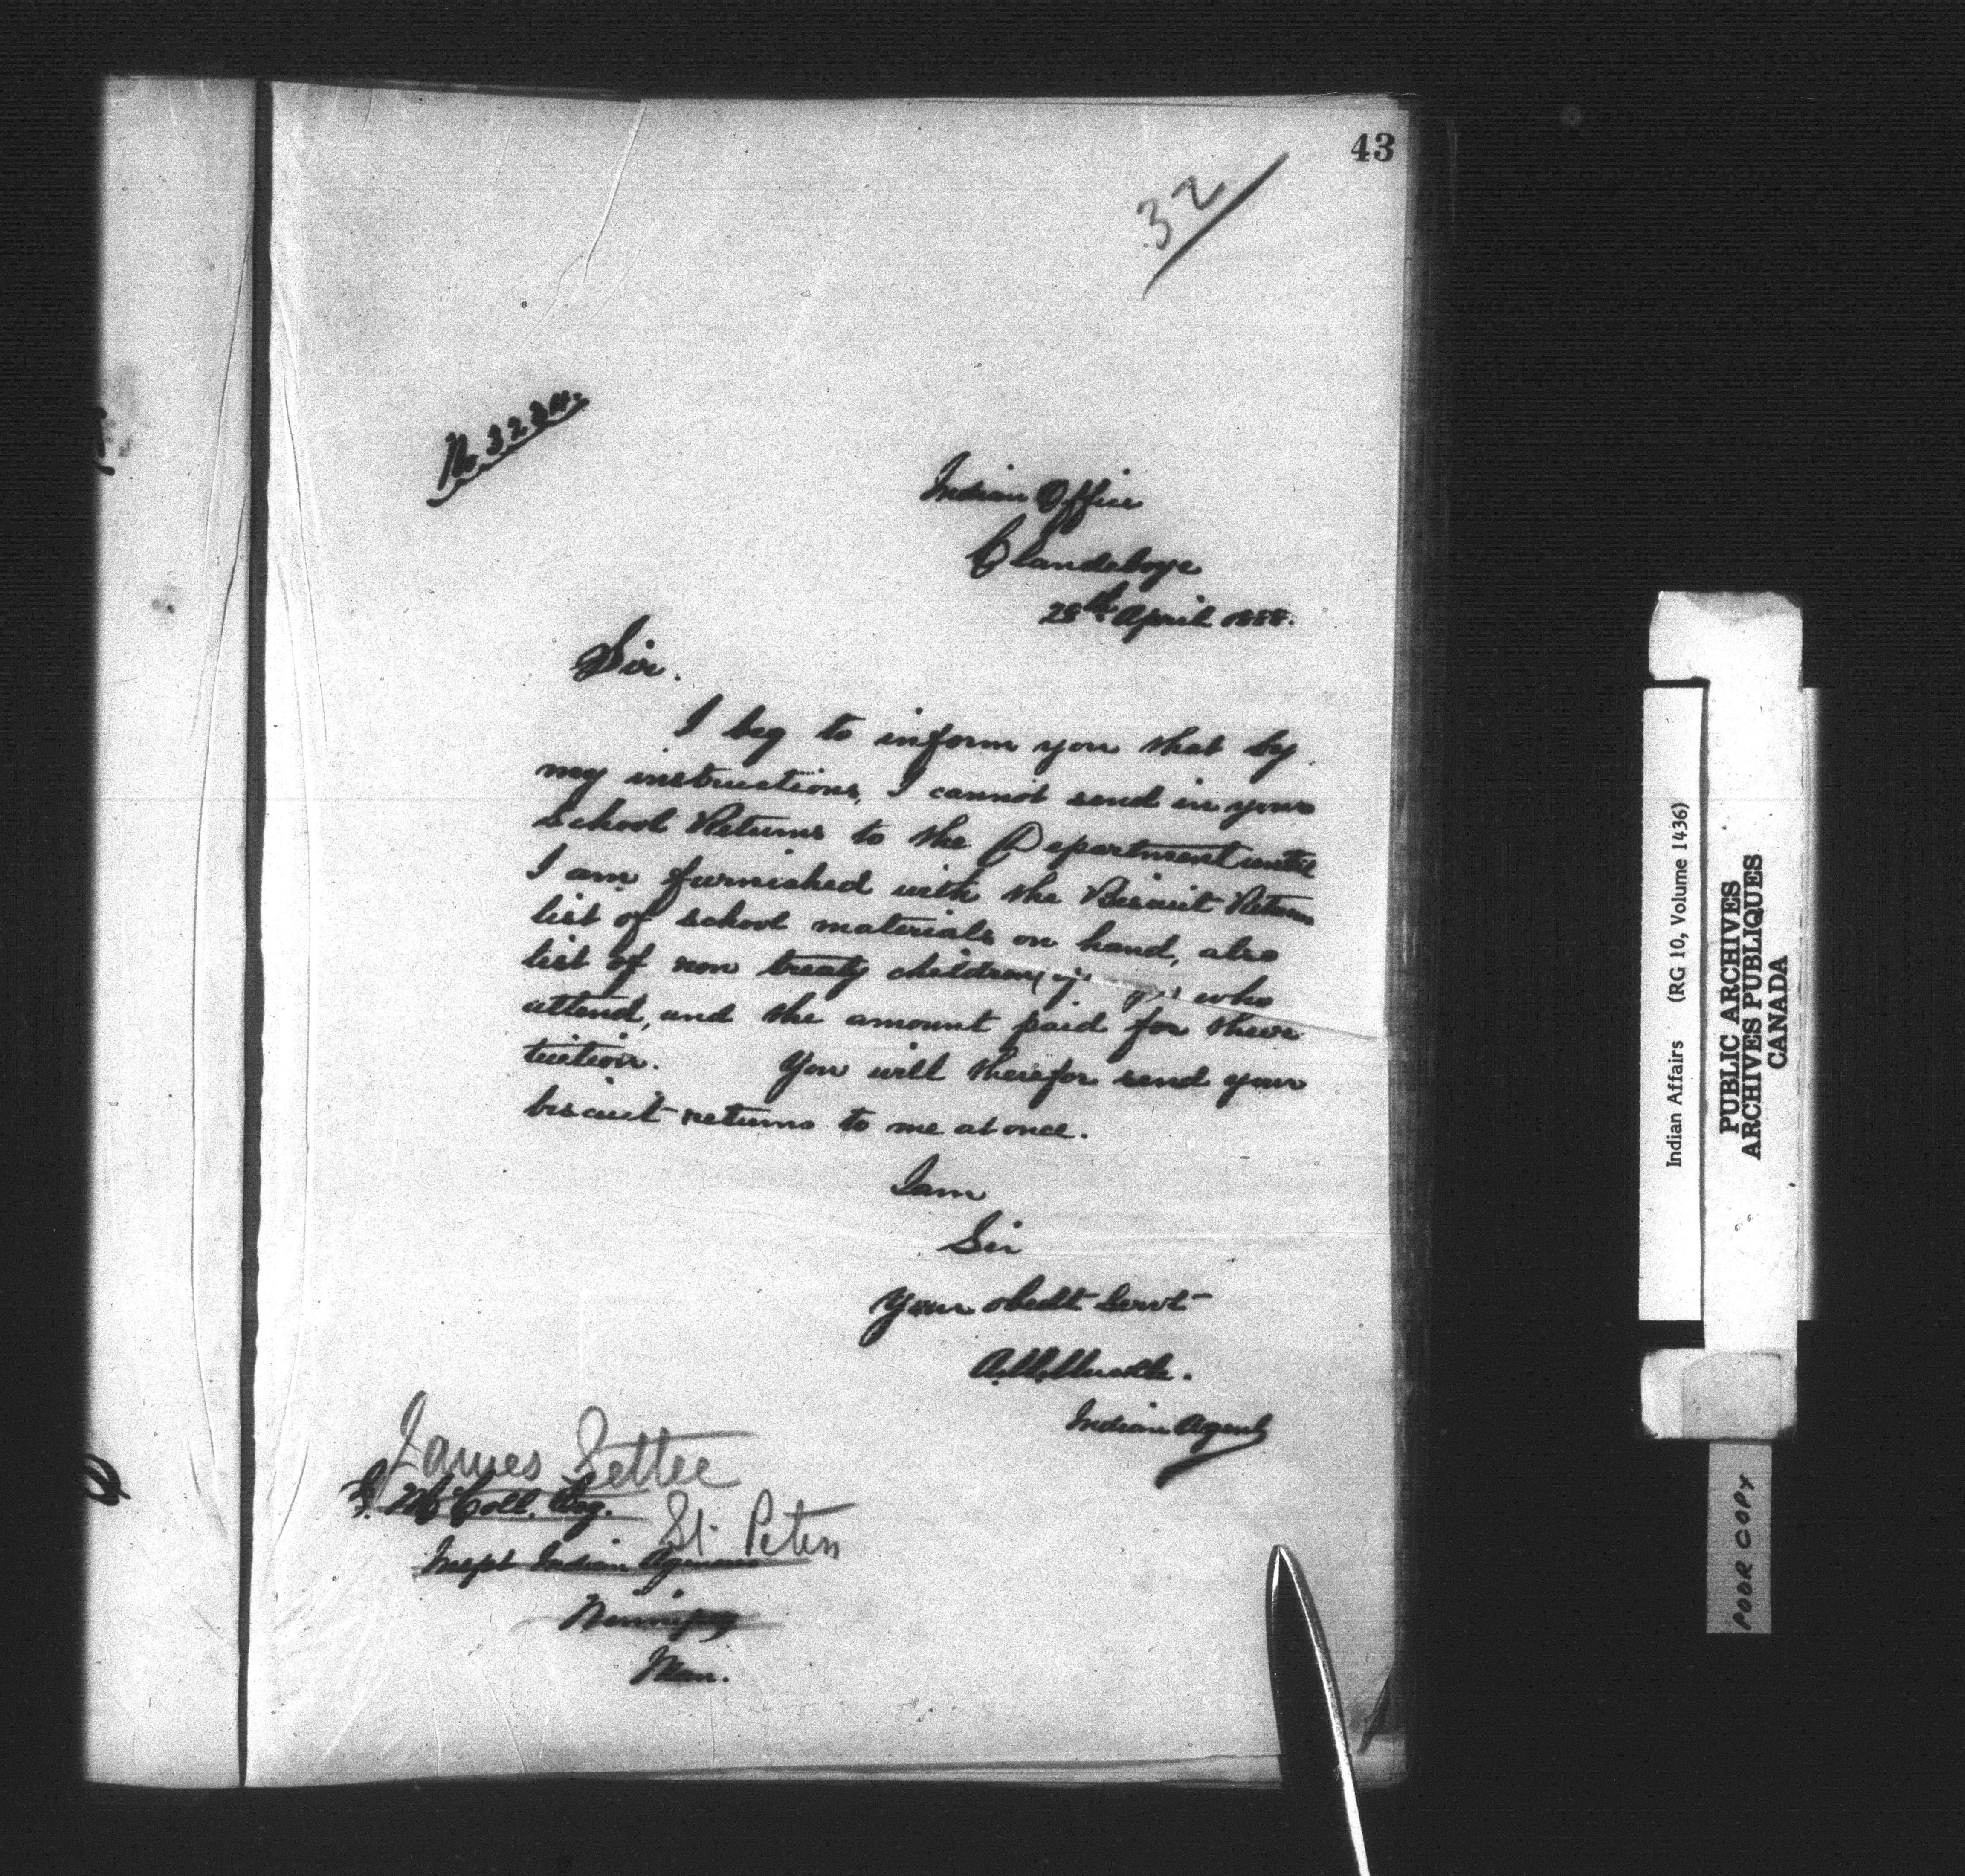 43
32
No 3234.
Indian Office
Clandeboye
28th April 1888.
Sir.
I beg to inform you that by
my instructions, I cannot send in your
School Returns to the Department until
I am furnished with the Biscuit Return
list of school materials on hand, also
list of non treaty children who
attend, and the amount paid for their
tuition. You will therefor send your
biscuit returns to me at once.
I am
Sir
Your obedt Servt
A. M. Muckle.
Indian Agent
James Settee
E. McColl. Esq.
St. Peters
Inspt Indian Agencies
Winnipeg
Man.
Indian Affairs (RG 10, Volume 1436)
PUBLIC ARCHIVES
ARCHIVES PUBLIQUES
CANADA
POOR COPY